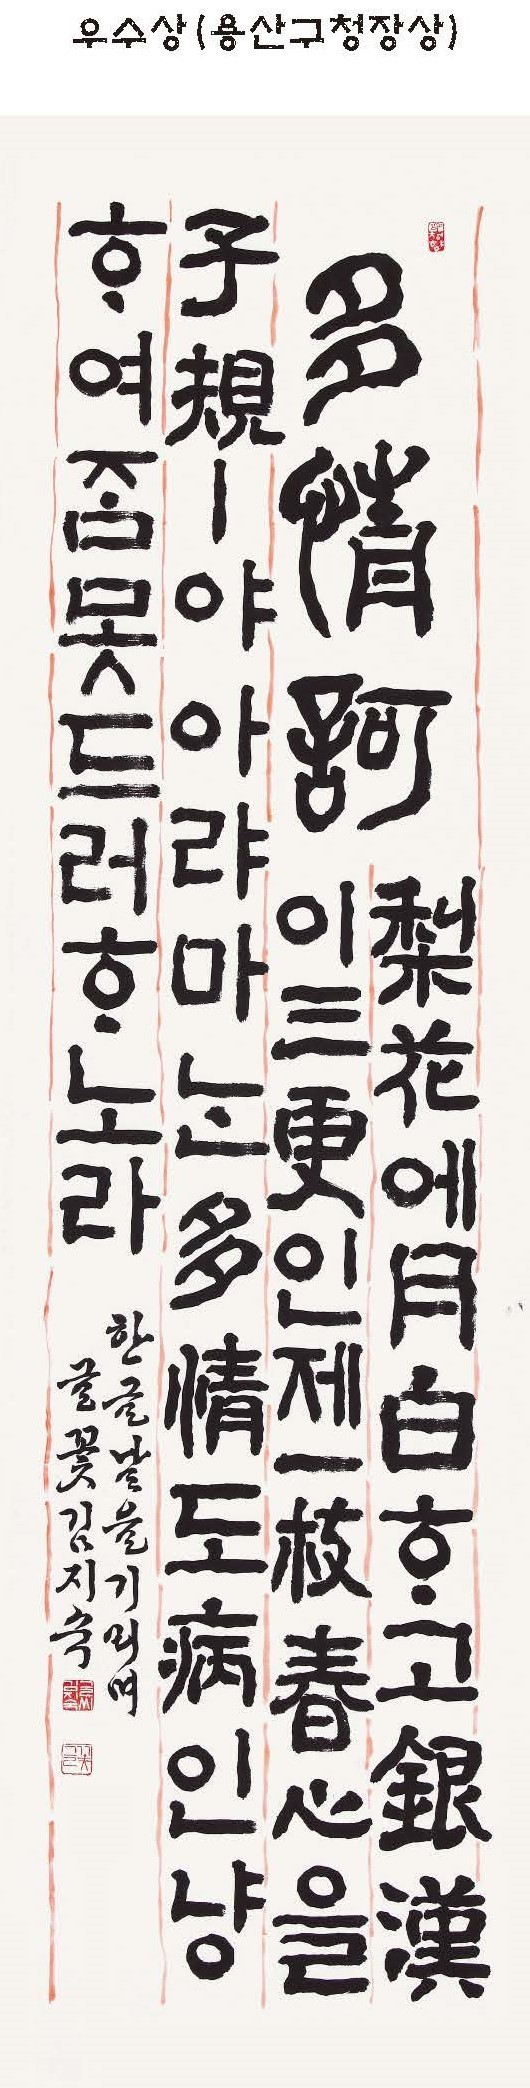 우수상(용산구청장상)
多情訶
梨花에月白ᄒᆞ고銀漢
이三更인제一枝春心을
子規ㅣ야아랴마ᄂᆞᆫ多情도病인냥
ᄒᆞ여ᄌᆞᆷ못드러ᄒᆞ노라
한글날을기리며
글꽃김지숙